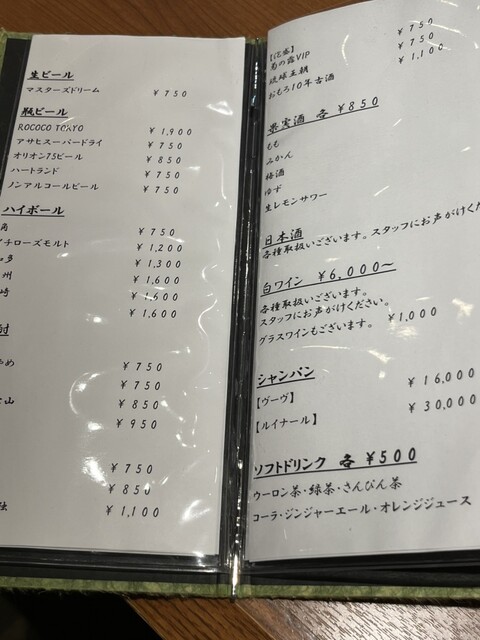 生ビール
マスターズドリーム ¥750
瓶ビール
ROCOCO TOKYO ¥1,900
アサヒスーパードライ ¥750
オリオン75ビール ¥850
ハートランド ¥750
ノンアルコールビール ¥750
ハイボール
角 ¥750
イチローズモルト ¥1,200
多 ¥1,300
州 ¥1,600
崎 ¥1,600
¥1,600
酎
¥750
¥750
山 ¥850
¥950
¥750
¥850
¥1,100
【泡盛】
菊の露VIP ¥750
琉球王朝 ¥750
おもろ10年古酒 ¥1,100
果実酒 各 ¥850
もも
みかん
梅酒
ゆず
生レモンサワー
日本酒
各種取扱いございます。スタッフにお声がけくだ
白ワイン ¥6,000~
各種取扱いございます。
スタッフにお声がけください。
グラスワインもございます。 ¥1,000
シャンパン
【ヴーヴ】 ¥16,000
【ルイナール】 ¥30,000
ソフトドリンク 各 ¥500
ウーロン茶・緑茶・さんぴん茶
コーラ・ジンジャーエール・オレンジジュース